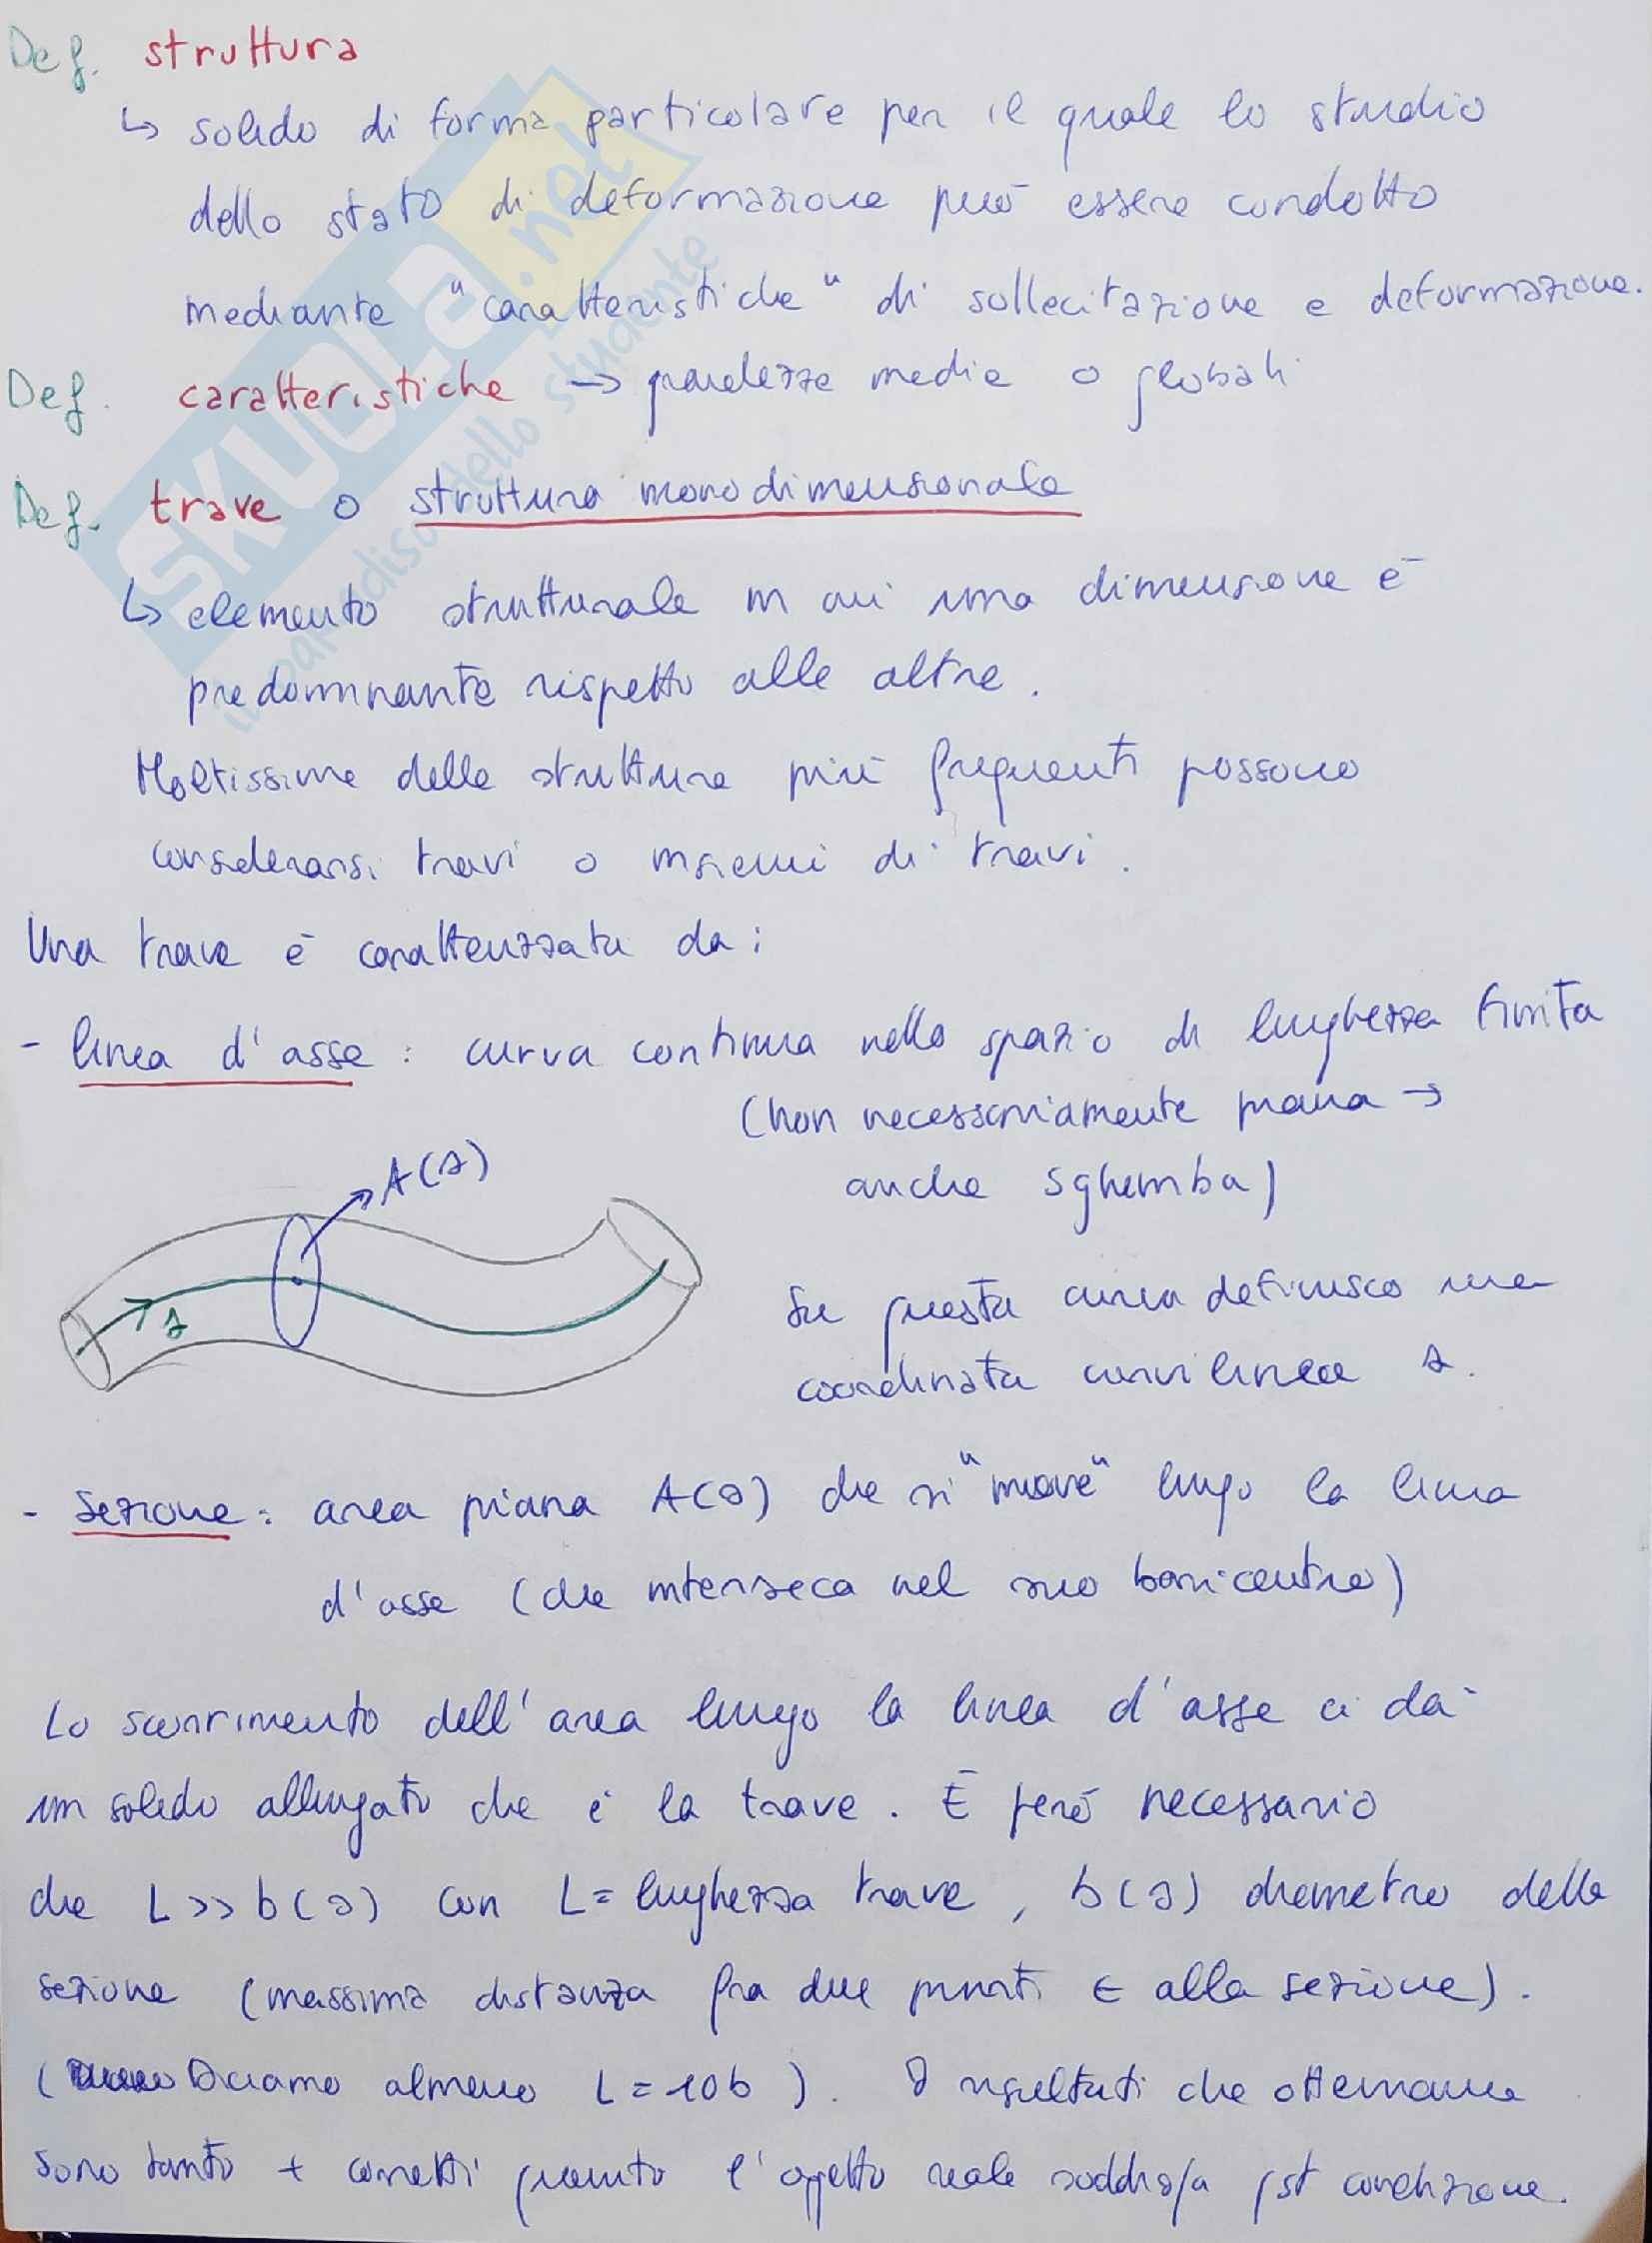 Def. struttura
↳ solido di forma particolare per il quale lo studio
dello stato di deformazione può essere condotto
mediante "caratteristiche" di sollecitazione e deformazione.
Def. caratteristiche → grandezze medie o globali
Def. trave o struttura monodimensionale
↳ elemento strutturale in cui una dimensione è
predominante rispetto alle altre.
Moltissime delle strutture più frequenti possono
considerarsi travi o insiemi di travi.
Una trave è caratterizzata da:
- linea d'asse: curva continua nello spazio di lunghezza finita
(non necessariamente piana →
anche sghemba)
A(s)
s
Su questa curva definisco una
coordinata curvilinea s.
- Sezione: area piana A(s) che si "muove" lungo la linea
d'asse (che interseca nel suo baricentro)
Lo scorrimento dell'area lungo la linea d'asse ci dà
un solido allungato che è la trave. È però necessario
che L>>b(s) con L=lunghezza trave, b(s) diametro della
sezione (massima distanza fra due punti ∈ alla sezione).
(Diciamo almeno L=10b). I risultati che otteniamo
sono tanto + corretti quanto l'oggetto reale soddisfa qst condizione.
SKUOLA.net
il paradiso dello studente